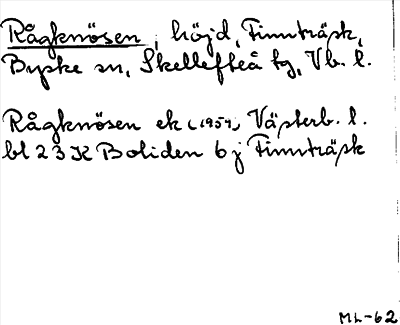 Rågknösen, höjd, Finnträsk,
Byske sn, Skellefteå tg, Vb. l.
Rågknösen ek (1959) Västerb. l.
bl 23 K Boliden 6 j Finnträsk
ML-62